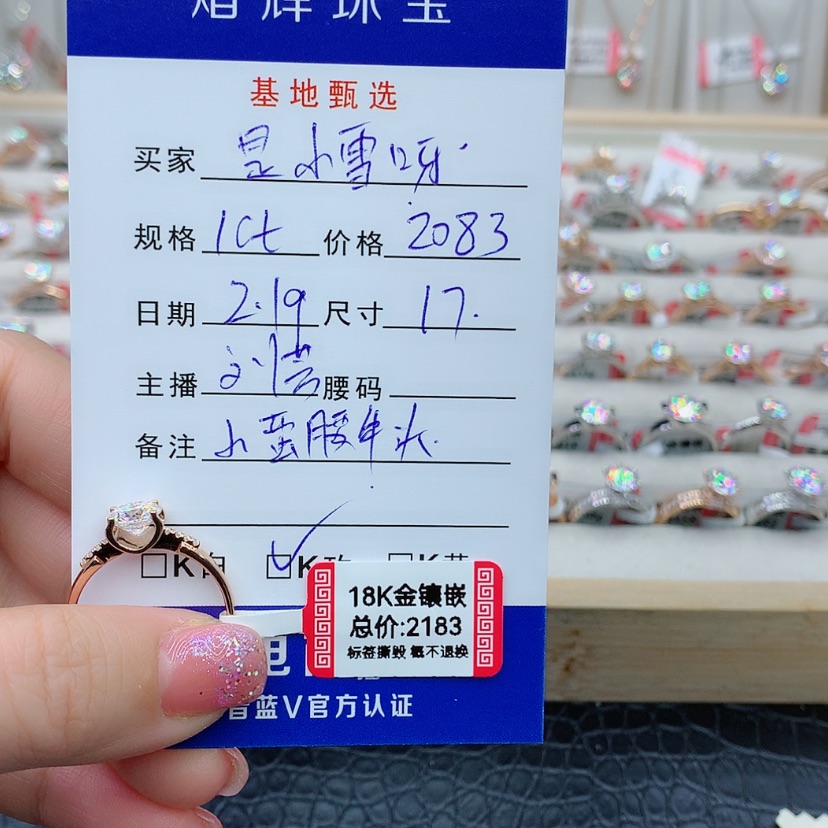 珠宝
基地甄选
买家 是小雪呀
规格 1ct 价格 2083
日期 2.19 尺寸 17.
主播 刘芸 腰码
备注 小蛮腰牛头
□K白 ☑K玫 □K黄
18K金镶嵌
总价:2183
标签撕毁 概不退换
蓝V官方认证